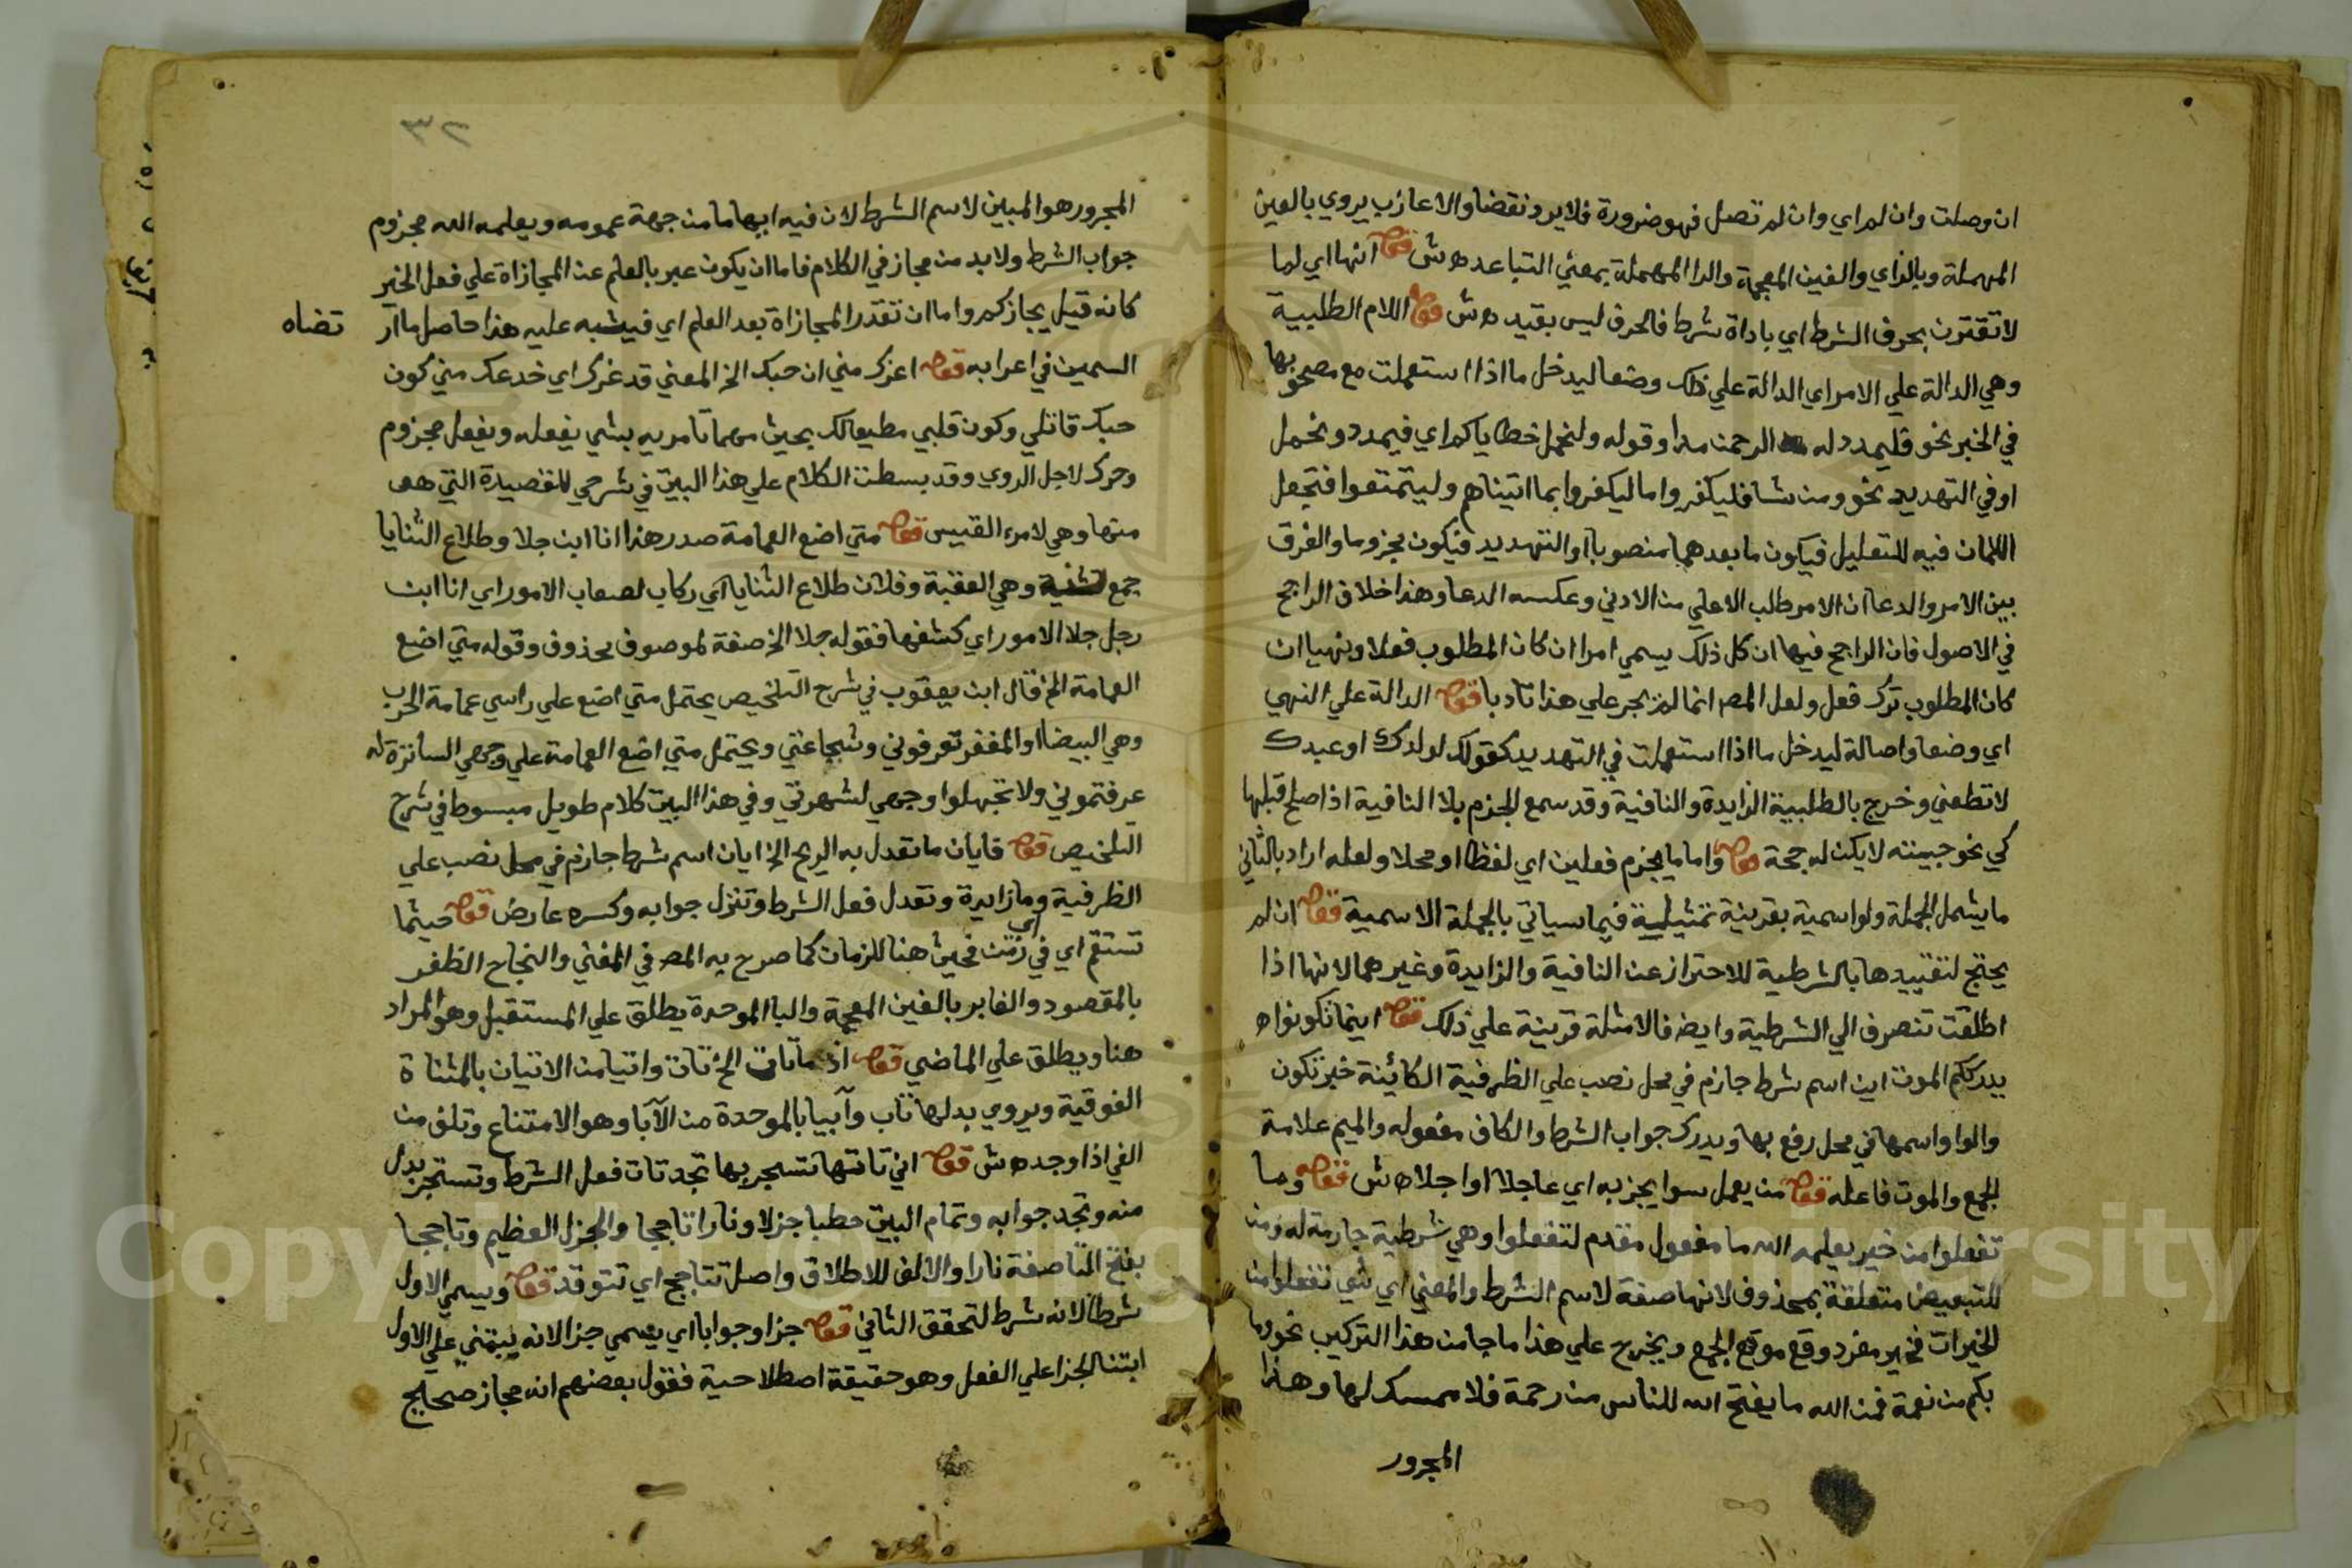 ان وصلت وان لم اي وان لم تصل فهو ضرورة فلا يرد نقضا والاعازب يروي بالعين
المهملة وبالزاي والغين المعجمة والرا المهملة بمعني التباعد ه ش قوله انها اي لما
لا تقترن بحرف الشرط اي باداة شرط فالحرف ليس بقيد ه ش قوله اللام الطلبية
وهي الدالة علي الامر اي الدالة علي ذلك وضعا ليدخل ما اذا استعملت مع مصحوبها
في الخبر نحو فليمدد له الرحمن مدا وقوله ولنحمل خطاياكم اي فيمدد ونحمل
او في التهديد نحو ومن شا فليكفر واما ليكفروا بما اتيناهم وليتمتعوا فتجعل
اللامان فيه للتعليل فيكون ما بعدهما منصوبا او التهديد فيكون مجزوما والفرق
بين الامر والدعا ان الامر طلب الاعلي من الادني وعكسه الدعا وهذا خلاف الراجح
في الاصول فان الراجح فيها ان كل ذلك يسمي امرا ان كان المطلوب فعلا ونهيا ان
كان المطلوب ترك فعل ولعل المص انما لم يجر علي هذا تادبا قوله الدالة علي النهي
اي وضعا واصالة ليدخل ما اذا استعملت في التهديد كقولك لولدك او عبدك
لا تطعني وخرج بالطلبية الزايدة والنافية وقد سمع الجزم بلا النافية اذا صلح قبلها
كي نحو جيبته لا يكن له حجة قوله واما ما يجزم فعلين اي لفظا او محلا ولعله اراد بالثاني
ما يشمل الجملة ولو اسمية بقرينة تمثيله فيما سياتي بالجملة الاسمية قوله ان لم
يحتج لتقييدها بالشرطية للاحتراز عن النافية والزايدة وغيرهما لانها اذا
اطلقت تنصرف الي الشرطية وايضا فالامثلة قرينة علي ذلك قوله اينما تكونوا ه
يدرككم الموت اين اسم شرط جازم في محل نصب علي الظرفية الكائنة خبر تكون
والواو اسمها في محل رفع بها ويدرك جواب الشرط والكاف مفعوله والميم علامة
الجمع والموت فاعله قوله من يعمل سوا يجز به اي عاجلا او اجلا ه ش قوله وما
تفعلوا من خير يعلمه الله ما مفعول مقدم لتفعلوا وهي شرطية جازمة له ومن
للتبعيض متعلقة بمحذوف لانها صفة لاسم الشرط والمعني اي شي تفعلوا من
الخيرات فخير مفرد وقع موقع الجمع ويخرج علي هذا ما جا من هذا التركيب نحو وما
بكم من نعمة فمن الله ما يفتح الله للناس من رحمة فلا ممسك لها وهذا
المجرور
٣٢
المجرور هو المبين لاسم الشرط لان فيه ابهاما من جهة عمومه ويعلمه الله مجزوم
جواب الشرط ولا بد من مجاز في الكلام فاما ان يكون عبر بالعلم عن المجازاة علي فعل الخير
كانه قيل يجازكم واما ان تقدر المجازاة بعد العلم اي فيثيبه عليه هذا حاصل ما ار
تضاه
السمين في اعرابه قوله اغرك مني ان حبك الخ المعني قد غرك اي خدعك مني كون
حبك قاتلي وكون قلبي مطيعا لك بحيث مهما تامريه بشي يفعله ويفعل مجزوم
وحرك لاجل الروي وقد بسطت الكلام علي هذا البيت في شرحي للقصيدة التي هو
منها وهي لامرء القيس قوله متي اضع العمامة صدر هذا انا ابن جلا وطلاع الثنايا
جمع ثنية وهي العقبة وفلان طلاع الثنايا اي ركاب لصعاب الامور اي انا ابن
رجل جلا الامور اي كشفها فقوله جلا الخ صفة لموصوف محذوف وقوله متي اضع
العمامة الخ قال ابن يعقوب في شرح التلخيص يحتمل متي اضع علي راسي عمامة الحرب
وهي البيضا او المغفر تعرفوني وشجاعتي ويحتمل متي اضع العمامة علي وجهي الساترة له
عرفتموني ولا تجهلوا وجهي لشهرتي وفي هذا البيت كلام طويل مبسوط في شرح
التلخيص قوله فايان ما تعدل به الريح الخ ايان اسم شرط جازم في محل نصب علي
الظرفية وما زايدة وتعدل فعل الشرط وتنزل جوابه وكسره عارض قوله حيثما
تستقم اي في اي زمن فحيث هنا للزمان كما صرح به المص في المغني والنجاح الظفر
بالمقصود والغابر بالغين المعجمة والبا الموحدة يطلق علي المستقبل وهو المراد
هنا ويطلق علي الماضي قوله اذ ما تات الخ تات واتيا من الاتيان بالمثناة
الفوقية ويروي بدلها تاب وآبيا بالموحدة من الآبا وهو الامتناع وتلف من
الفي اذا وجد ه ش قوله اني تاتها تستجر بها تجد تات فعل الشرط وتستجر بدل
منه وتجد جوابه وتمام البيت حطبا جزلا ونارا تاججا والجزل العظيم وتاججا
بفتح التا صفة نارا والالف للاطلاق واصله تتاجج اي تتوقد قوله ويسمي الاول
شرطا لانه شرط لتحقق الثاني قوله جزا وجوابا اي يسمي جزا لانه يبتني علي الاول
ابتنا الجزا علي الفعل وهو حقيقة اصطلاحية فقول بعضهم انه مجاز صحيح